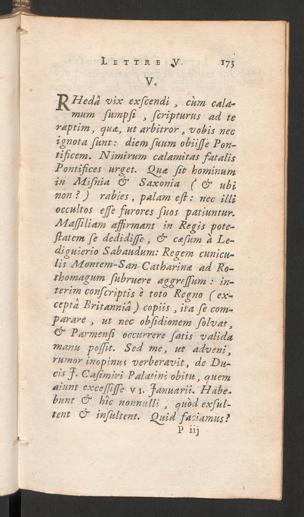 LETTRE V. 173
V.
RHedâ vix exscendi, cùm cala-
mum sumpsi, scripturus ad te
raptim, quæ, ut arbitror, vobis nec
ignota sunt: diem suum obiisse Pon-
tificem. Nimirum calamitas fatalis
Pontifices urget. Quæ sit hominum
in Misnia & Saxonia (& ubi
non?) rabies, palam est: nec illi
occultos esse furores suos patiuntur.
Massiliam affirmant in Regis pote-
statem se dedidisse, & cæsum à Le-
diguierio Sabaudum: Regem cunicu-
lis Montem-San Catharinæ ad Ro-
thomagum subruere aggressum: in-
terim conscriptis è toto Regno (ex-
ceptâ Britanniâ) copiis, ita se com-
parare, ut nec obsidionem solvat,
& Parmensi occurrere satis valida
manu possit. Sed me, ut adveni,
rumor inopinus verberavit, de Du-
cis J. Casimiri Palatini obitu, quem
aiunt excessisse VI. Januarii. Habe-
bunt & hîc nonnulli, quòd exsul-
tent & insultent. Quid faciamus?
P iij